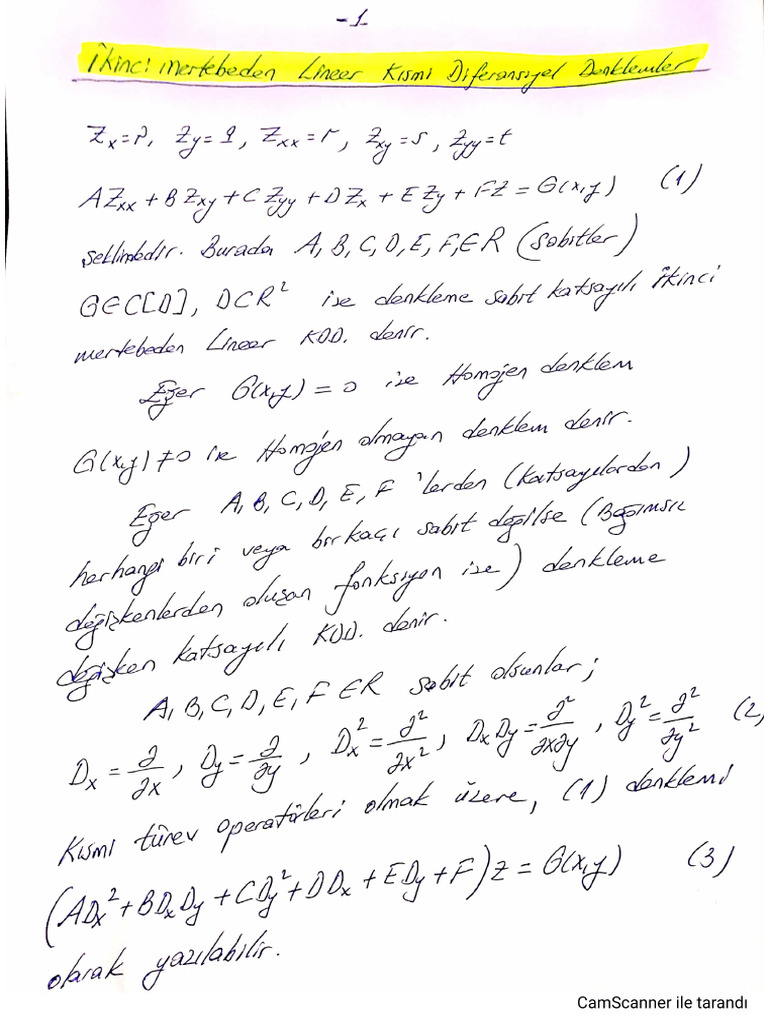 -1
İkinci mertebeden Lineer Kısmi Diferansiyel Denklemler
Zx=p, Zy=q, Zxx=r, Zxy=s, Zyy=t
AZxx + BZxy + CZyy + DZx + EZy + FZ = G(x,y) (1)
şeklindedir. Burada A, B, C, D, E, F, ∈R (sabitler)
G∈C[D], D⊂R² ise denkleme sabit katsayılı ikinci
mertebeden Lineer KDD. denir.
Eğer G(x,y) = 0 ise Homojen denklem
G(x,y) ≠ 0 ise Homojen olmayan denklem denir.
Eğer A, B, C, D, E, F 'lerden (katsayılardan)
herhangi biri veya birkaçı sabit değilse (Bağımsız
değişkenlerden oluşan fonksiyon ise) denkleme
değişken katsayılı KDD. denir.
A, B, C, D, E, F ∈R sabit olsunlar;
Dx = ∂/∂x, Dy = ∂/∂y, Dx² = ∂²/∂x², DxDy = ∂²/∂x∂y, Dy² = ∂²/∂y² (2)
Kısmi türev operatörleri olmak üzere, (1) denklemi
(ADx² + BDxDy + CDy² + DDx + EDy + F)z = G(x,y) (3)
olarak yazılabilir.
CamScanner ile tarandı